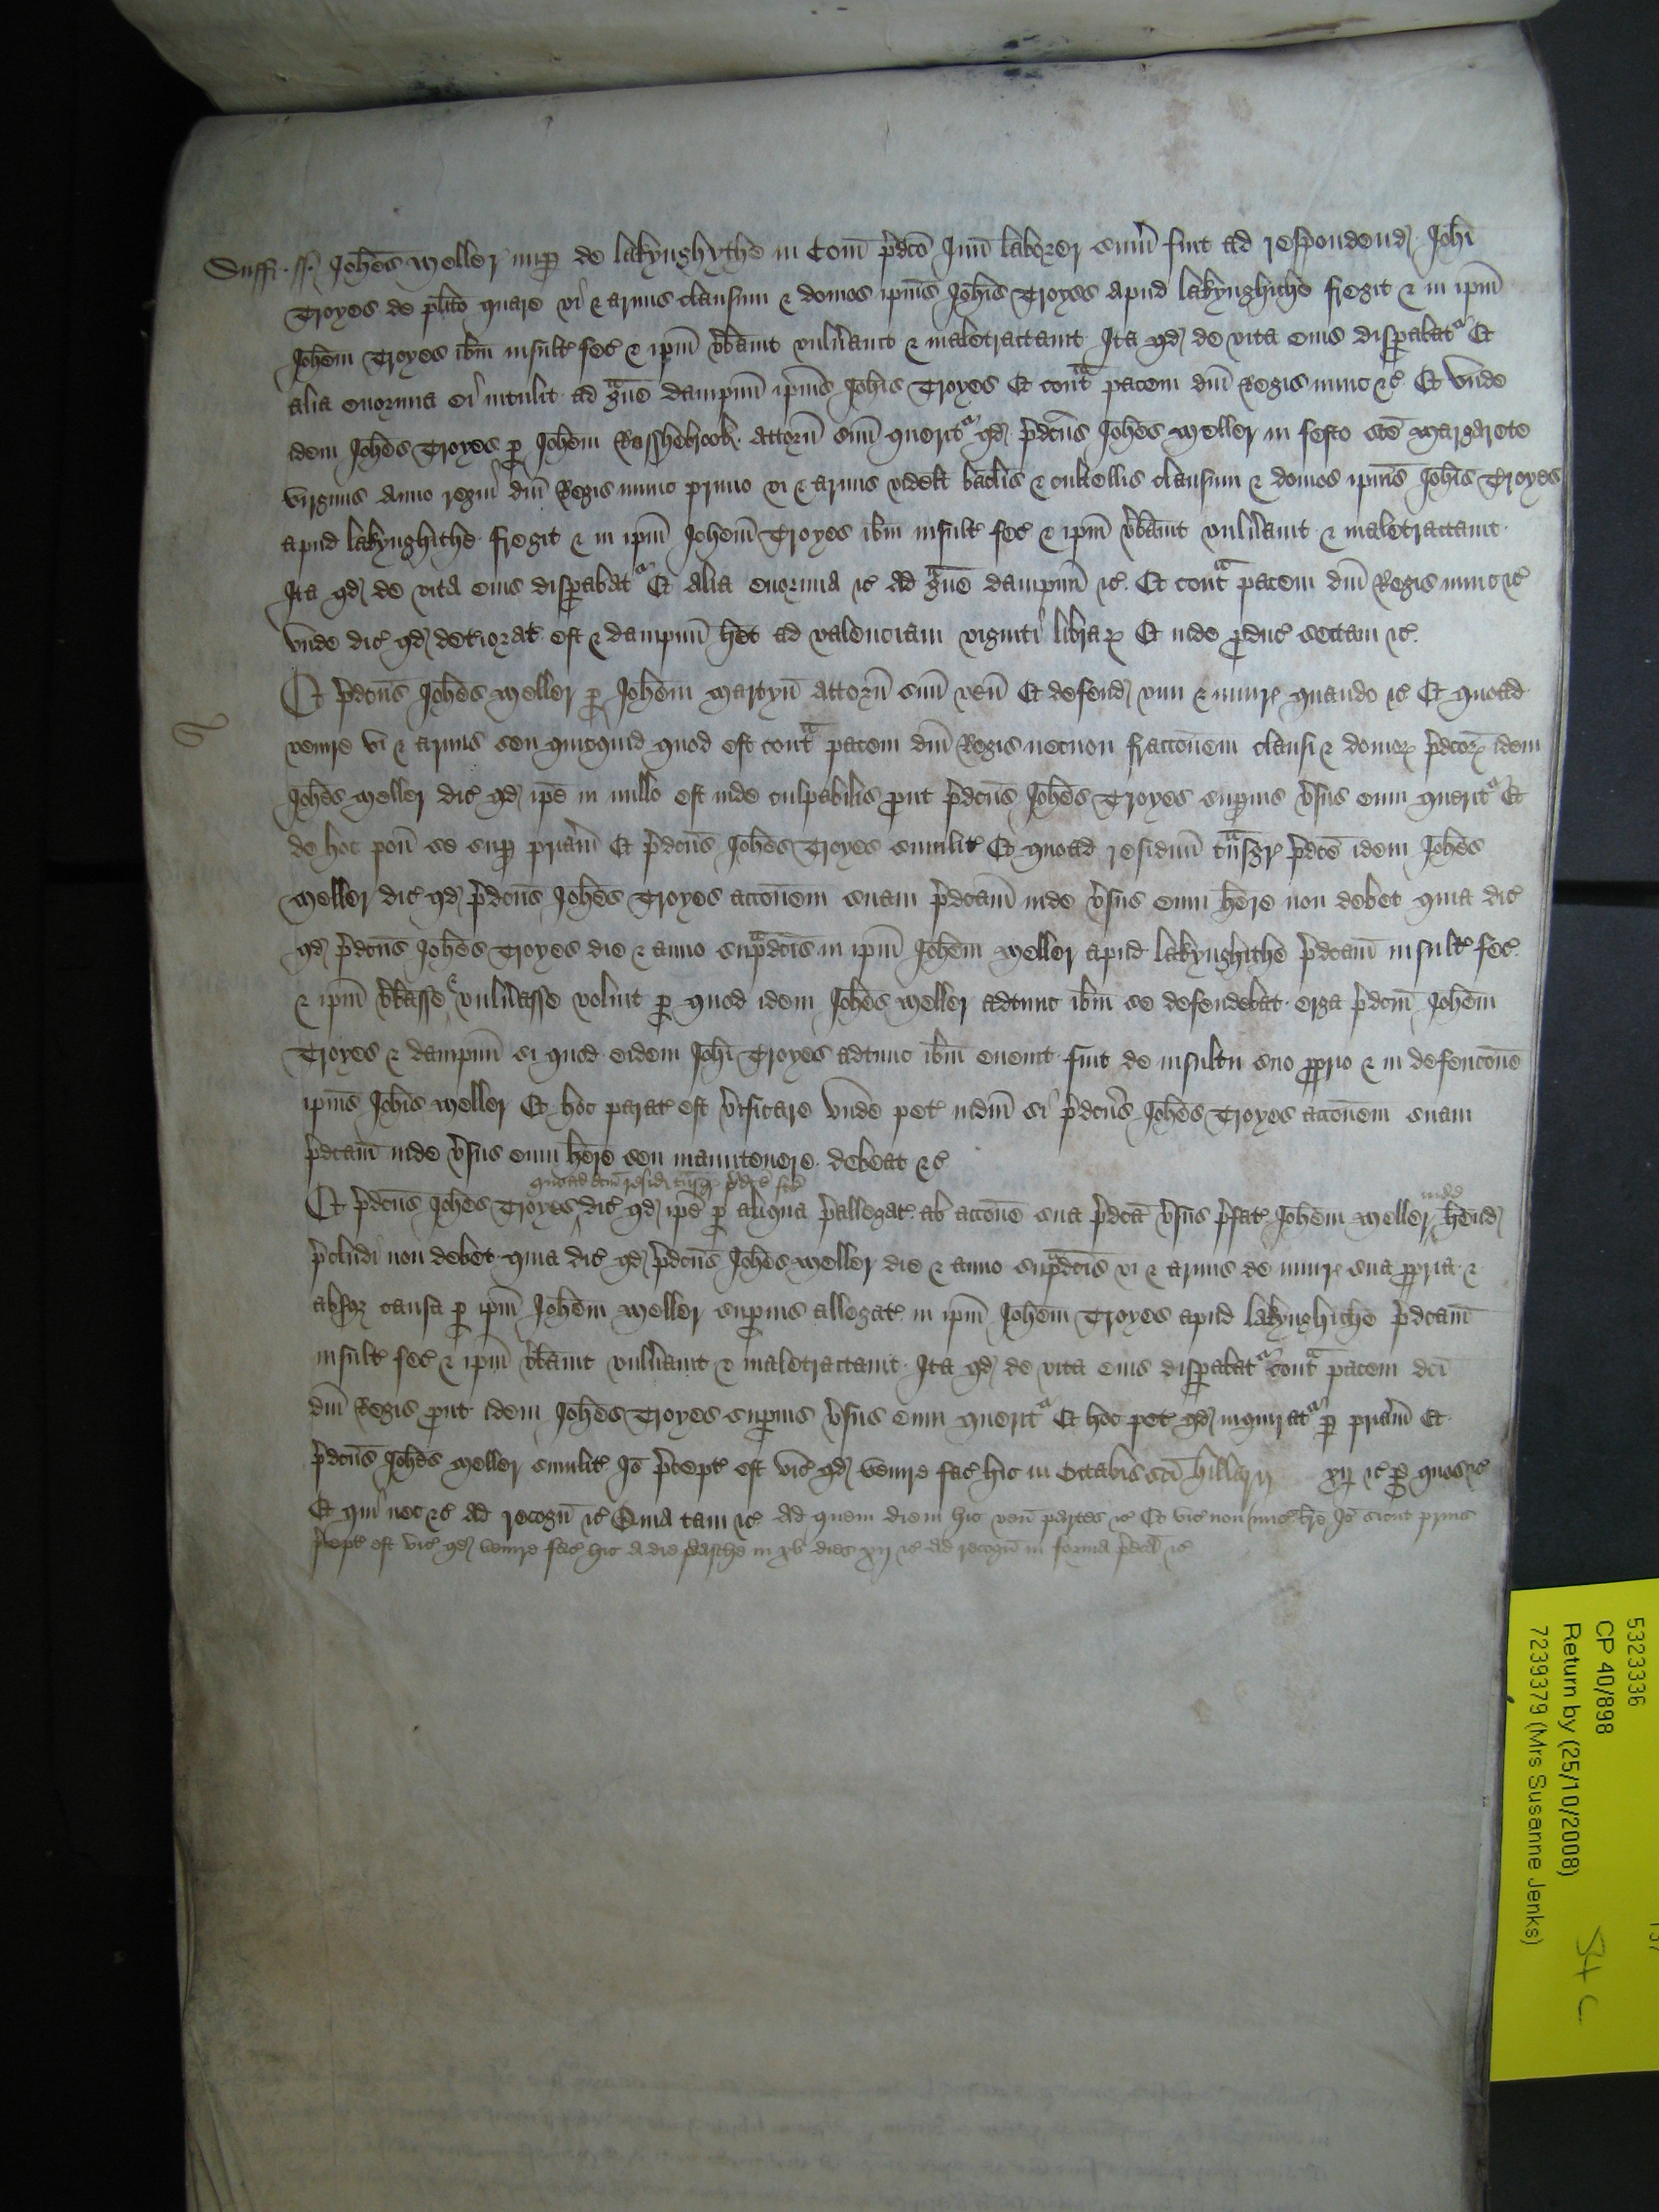 Suff. ss. Johēs Meller nup̱ de lakynghythe in Com̄ p̄dc̄o Jun̄ laborer sum̄ fuit ad respondend̄ Joħi
Troyes de pl̄ito quare vi & armis clausum & domos ip̄ius Joħis Troyes apud lakynghithe fregit & in ip̄m
Joħem Troyes ib̄m insult̄ fec̄ & ip̄m v̄bauit vuln̄auit & maletractauit Ita qd̄ de vita eius disp̱abatr Et
alia enormia ei intulit ad gͣue dampnū ip̄ius Joħis Troyes Et contͣ pacem dn̄i Regis nunc &c̄ Et vnde
idem Joħes Troyes p̱ Joħem Rasshebrook attorn̄ suū queritr qd̄ p̄dc̄us Joħes Meller in festo sc̄e Margarete
virginis Anno regni dn̄i Regis nunc primo vi & armis videlt bac̄lis & cultellis clausum & domos ip̄ius Joħis Troyes
apud lakynghithe fregit & in ip̄m Joħem Troyes ib̄m insult̄ fec̄ & ip̄m v̄bauit vuln̄auit & maletractauit
Ita qd̄ de vita eius disp̱abatr Et alia enormia &c̄ ad gͣue dampnū &c̄ Et contͣ pacem dn̄i Regis nunc &c̄
vnde dic̄ qd̄ det̄iorat̄ est & dampnū h̄et ad valenciam viginti librar̄ Et inde p̱duc̄ sectam &c̄
Et p̄dc̄us Joħes Meller p̱ Joħem Martyn̄ attorn̄ suū ven̄ Et defend̄ vim & iniur̄ quando &c̄ Et quoad
venire vi & armis seu quicquid quod est contͣ pacem dn̄i Regis necnon fracc̄onem clausi & domor̄ p̄dc̄or̄ idem
Joħes Meller dic̄ qd̄ ip̄e in nullo est inde culpabilis p̱ut p̄dc̄us Joħes Troyes sup̱ius v̄sus eum queritr Et
de hoc pon̄ se sup̱ pr̄iam Et p̄dc̄us Joħes Troyes similit̄ Et quoad residuū tͣnsgr̄ p̄dc̄e idem Joħes
Meller dic̄ qd̄ p̄dc̄us Joħes Troyes acc̄onem suam p̄dc̄am inde v̄sus eum h̄ere non debet quia dic̄
qd̄ p̄dc̄us Joħes Troyes die & anno supͣdc̄is in ip̄m Joħem Meller apud lakynghithe p̄dc̄am insult̄ fec̄
& ip̄m v̄basse & vuln̄asse voluit p̱ quod idem Joħes Meller adtunc ib̄m se defendebat erga p̄dc̄m Joħem
Troyes & dampnū si quod eidem Joħi Troyes adtunc ib̄m euenit fuit de insultu suo p̱prio & in defenc̄one
ip̄ius Joħis Meller Et hoc parat̄ est v̄ificare vnde pet̄ iudm̄ si p̄dc̄us Joħes Troyes acc̄onem suam
p̄dc̄am inde v̄sus eum h̄ere seu manutenere debeat &c̄
quoad dc̄m resid̄ tͣnsgr̄ p̄dc̄e fiend̄ inde
Et p̄dc̄us Joħes Troyes dic̄ qd̄ ip̄e p̱ aliqua p̄allegat̄ ab acc̄one sua p̄dc̄a v̄sus p̄fat̄ Joħem Meller h̄end̄
p̄cludi non debet quia dic̄ qd̄ p̄dc̄us Joħes Meller die & anno supͣdc̄is vi & armis de iniur̄ sua p̱pria &
absqȝ causa p̱ ip̄m Joħem Meller sup̱ius allegat̄ in ip̄m Joħem Troyes apud lakynghithe p̄dc̄am
insult̄ fec̄ & ip̄m v̄bauit vuln̄auit & maletractauit Ita qd̄ de vita eius disp̱abatr contͣ pacem dc̄i
dn̄i Regis p̱ut idem Joħes Troyes sup̱ius v̄sus eum queritr Et hoc pet̄ qd̄ inquiratr p̱ pr̄iam Et
p̄dc̄us Joħes Meller similit̄ Jō p̄cept̄ est vic̄ qd̄ venire fac̄ hic in Octabis sc̄i hillarij xij &c̄ p̱ quos &c̄
Et qui nec &c̄ ad recogn̄ &c̄ Quia tam &c̄ Ad quem diem hic ven̄ partes &c̄ Et vic̄ non mis̄ br̄e Jō sicut prius
p̄cept̄ est vic̄ qd̄ venire fac̄ hic a die Pasche in xv dies xij &c̄ ad recogn̄ in forma p̄dc̄a &c̄
5323336
CP 40/898
Return by (25/10/2008)
7239379 (Mrs Susanne Jenks)